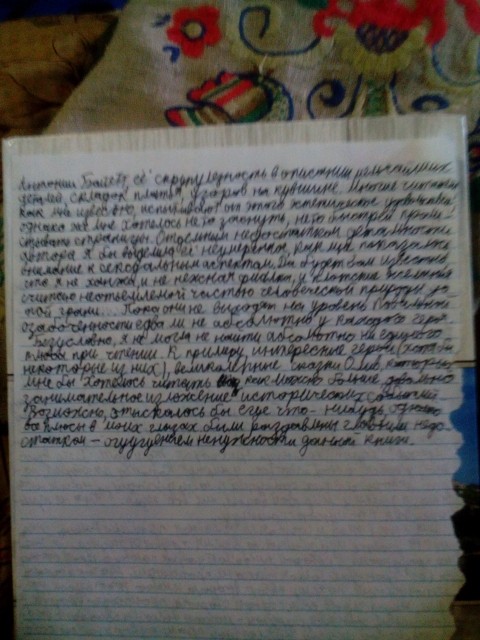 Антонии Байетт, её скрупулезность в описании мельчайших
деталей, складок платья, узоров на кувшине. Многие читатели
как мне известно, испытывают от этого эстетическое удовольствие
однако же мне хотелось не то заснуть, не то быстрей проли-
стать страницы. Отдельным недостатком
автора я бы выделил неумеренное, как мне показалось
внимание к сексуальным аспектам. Да будет вам известно
что я не ханжа, и не нежная фиалка, и плотские желания
считаю неотъемлемой частью человеческой природы до
той грани... Пока они не выходят на уровень
озабоченности едва ли не абсолютно у каждого героя.
Безусловно, я не могла не найти абсолютно ни единого
плюса при чтении. К примеру, интересные герои (хотя бы
некоторые из них), великолепные сказки
мне бы хотелось читать как можно больше, довольно
занимательное изложение исторических событий
Возможно, отыскалось бы еще что-нибудь, однако
все плюсы в моих глазах были раздавлены главным недо-
статком - ощущением ненужности данной книги.